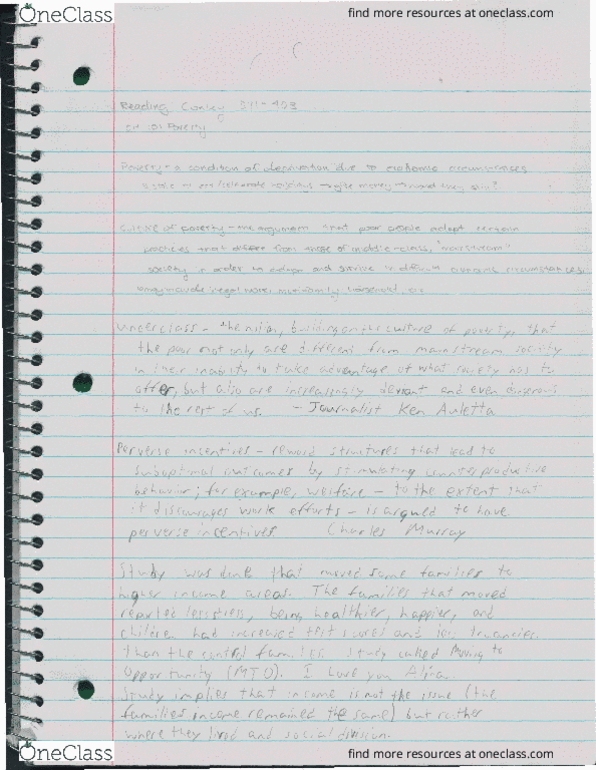 OneClass
find more resources at oneclass.com
Reading Conley 391-403
Poverty
Poverty - a condition of deprivation due to economic circumstances
give money
Culture of poverty - the argument that poor people adopt certain
practices that differ from those of middle-class, "mainstream"
society in order to adapt and survive in difficult economic circumstances
illegal work,
Underclass - the notion, building on the culture of poverty, that
the poor not only are different from mainstream society
in their inability to take advantage of what society has to
offer, but also are increasingly deviant and even dangerous
to the rest of us. - Journalist Ken Auletta
Perverse incentives - reward structures that lead to
suboptimal outcomes by stimulating counterproductive
behavior; for example, welfare - to the extent that
it discourages work efforts - is argued to have
perverse incentives. Charles Murray
Study was done that moved some families to
higher income areas. The families that moved
reported less stress, being healthier, happier, and
children had increased test scores and less truancies.
than the control families. Study called Moving to
Opportunity (MTO). I love you
Study implies that income is not the issue (the
families income remained the same) but rather
where they lived and social division.
OneClass
find more resources at oneclass.com